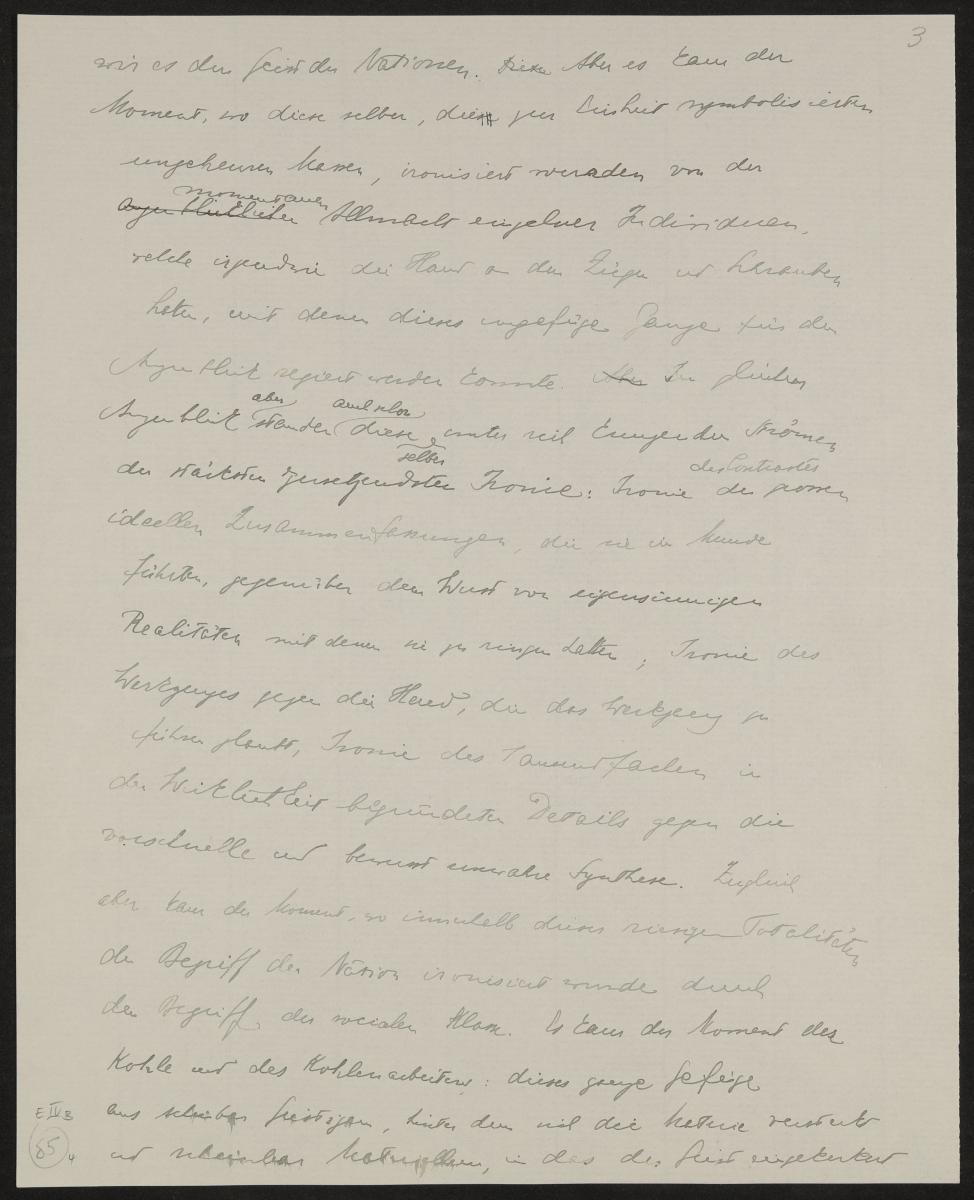 3
wir es den Geist der Nationen. Diese Aber es kam der
Moment, wo diese selber, diese zur Einheit symbolisierten
ungeheuren Massen, ironisiert wurden von der
momentanen
augenblicklichen Allmacht einzelner Individuen,
welche irgendwie die Hand an den Zügen und Schrauben
hatten, mit denen dieses ungefüge Ganze für den
Augenblick regiert werden konnte. Aber Im gleichen
aber auch schon
Augenblick standen diese unter sich kreuzenden Strömen
selber des Contrastes
der stärksten zersetzendsten Ironie: Ironie der grossen
ideellen Zusammenfassungen, die sie im Munde
führten, gegenüber dem Wust von eigensinnigen
Realitäten mit denen sie zu ringen hatten; Ironie des
Werkzeuges gegen die Hand, die das Werkzeug zu
führen glaubt, Ironie des tausendfachen in
der Wirklichkeit begründeten Details gegen die
vorschnelle und bewusst unwahre Synthese. Zugleich
aber kam der Moment, wo innerhalb dieser riesigen Totalitäten
der Begriff der Nation ironisiert wurde durch
den Begriff der socialen Klasse. Es kam der Moment der
Kohle und des Kohlenarbeiters: dieses ganze Gefüge
aus scheinbar Geistigem, hinter dem sich die Materie versteckt
und scheinbar Materiellem, in das der Geist eingekerkert
E IV B
85
4